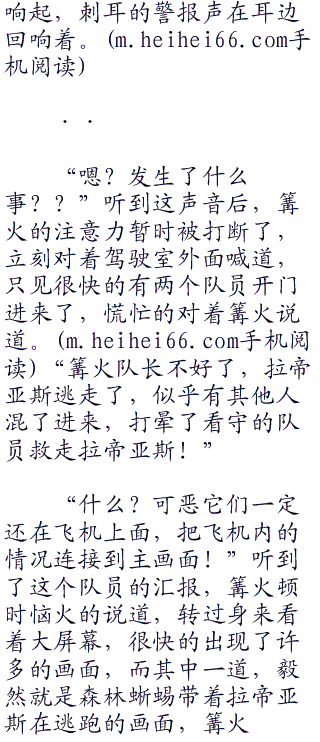 响起，刺耳的警报声在耳边
回响着。(m.heihei66.com手
机阅读)
．．
“嗯？发生了什么
事？？”听到这声音后，篝
火的注意力暂时被打断了，
立刻对着驾驶室外面喊道，
只见很快的有两个队员开门
进来了，慌忙的对着篝火说
道。(m.heihei66.com手机阅
读)“篝火队长不好了，拉帝
亚斯逃走了，似乎有其他人
混了进来，打晕了看守的队
员救走拉帝亚斯！”
“什么？可恶它们一定
还在飞机上面，把飞机内的
情况连接到主画面！”听到
了这个队员的汇报，篝火顿
时恼火的说道，转过身来看
着大屏幕，很快的出现了许
多的画面，而其中一道，毅
然就是森林蜥蜴带着拉帝亚
斯在逃跑的画面，篝火